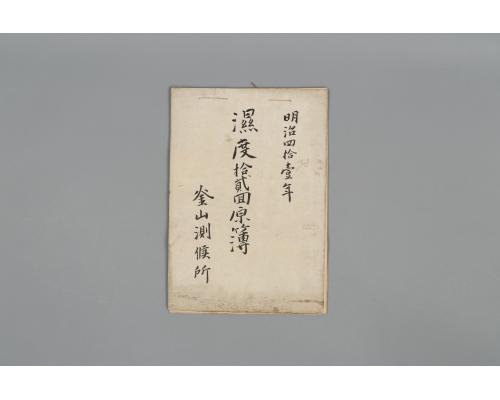 明治四拾壹年
濕度拾貳回原簿
釜山測候所